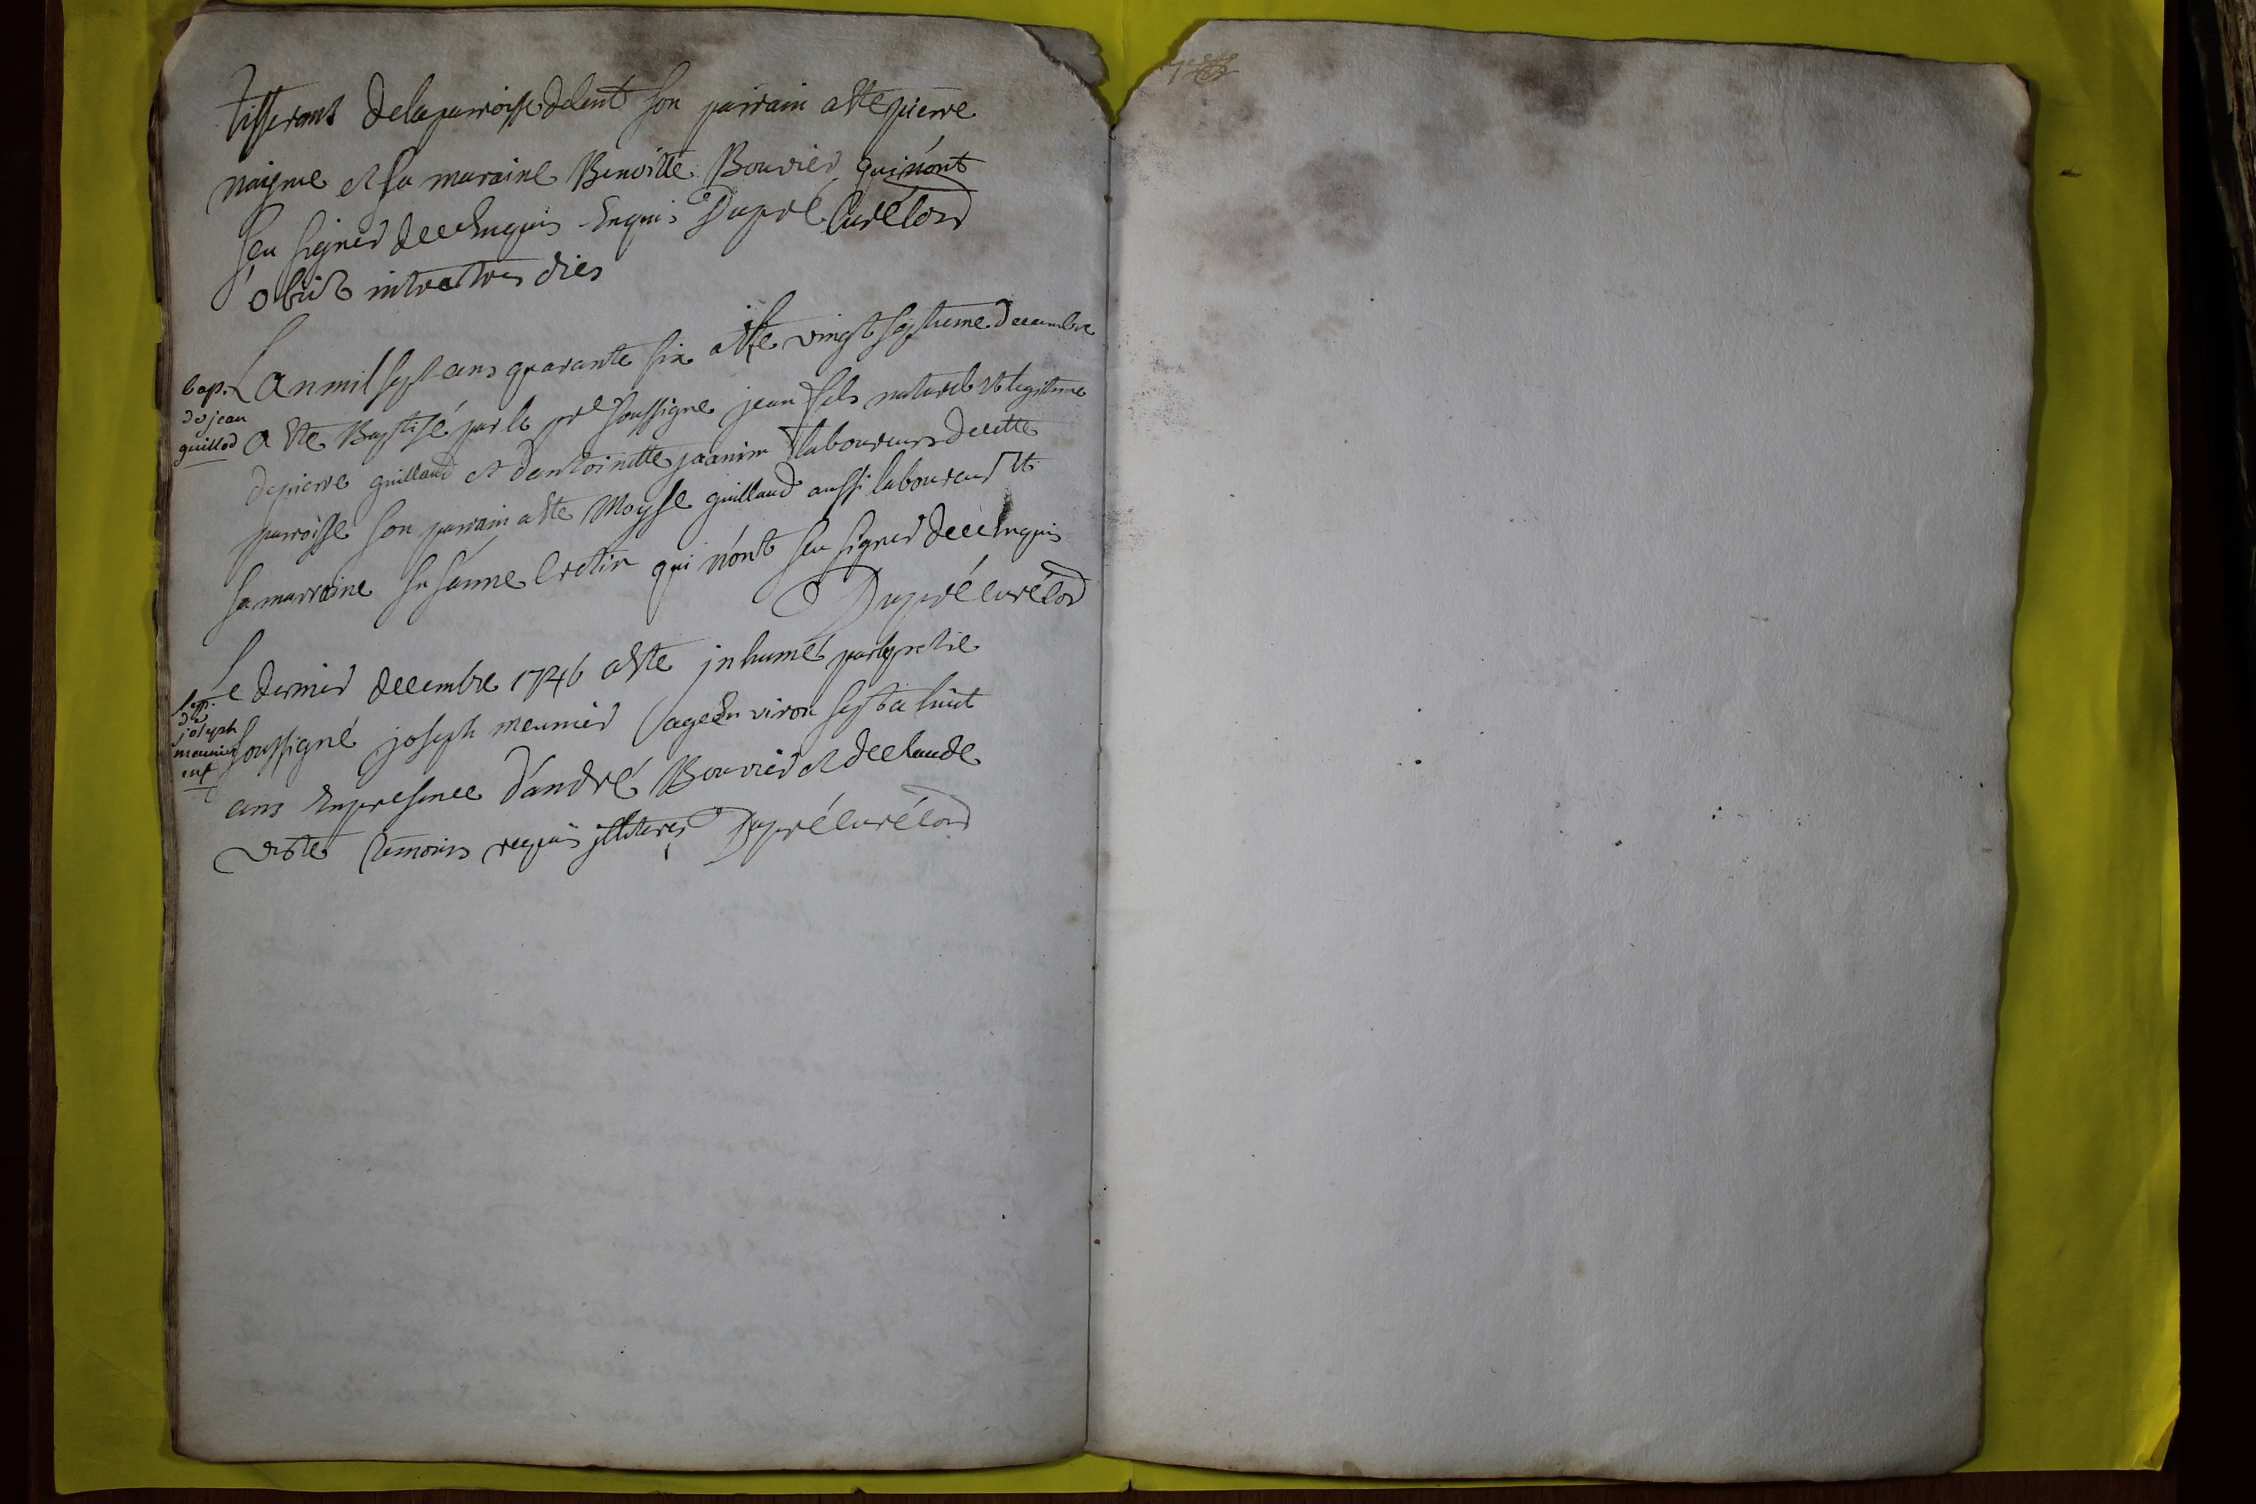 tisserant delaparroisse delent son parrain aété pierre
naigme et sa maraine Benoitte Bouvier qui n'ont
seu signer deceEnquis Enquis Dupré Curé lord
obiit intra tres dies
bap.
de jean
guillod
Lan mil sept cens quarante six et le vingt septieme decembre
a été Baptisé par le pre soussigne jean fils naturel et legitime
depierre guillaud et dantoinette jeanin laboureurs decette
parroisse son parrain a été Moyse guillaud aussi laboureur et
sa marraine susanne Cretin qui n'ont seu signer deceEnquis
Dupré curé lord
de
joseph
meunier
enf
Le dernier decembre 1746 aété jnhumé parleprétre
soussigné joseph meunier agé Environ sept a huit
ans Enpresence d'andré Bouvier et declaude
témoins requis jlliterés Dupré Curé lord